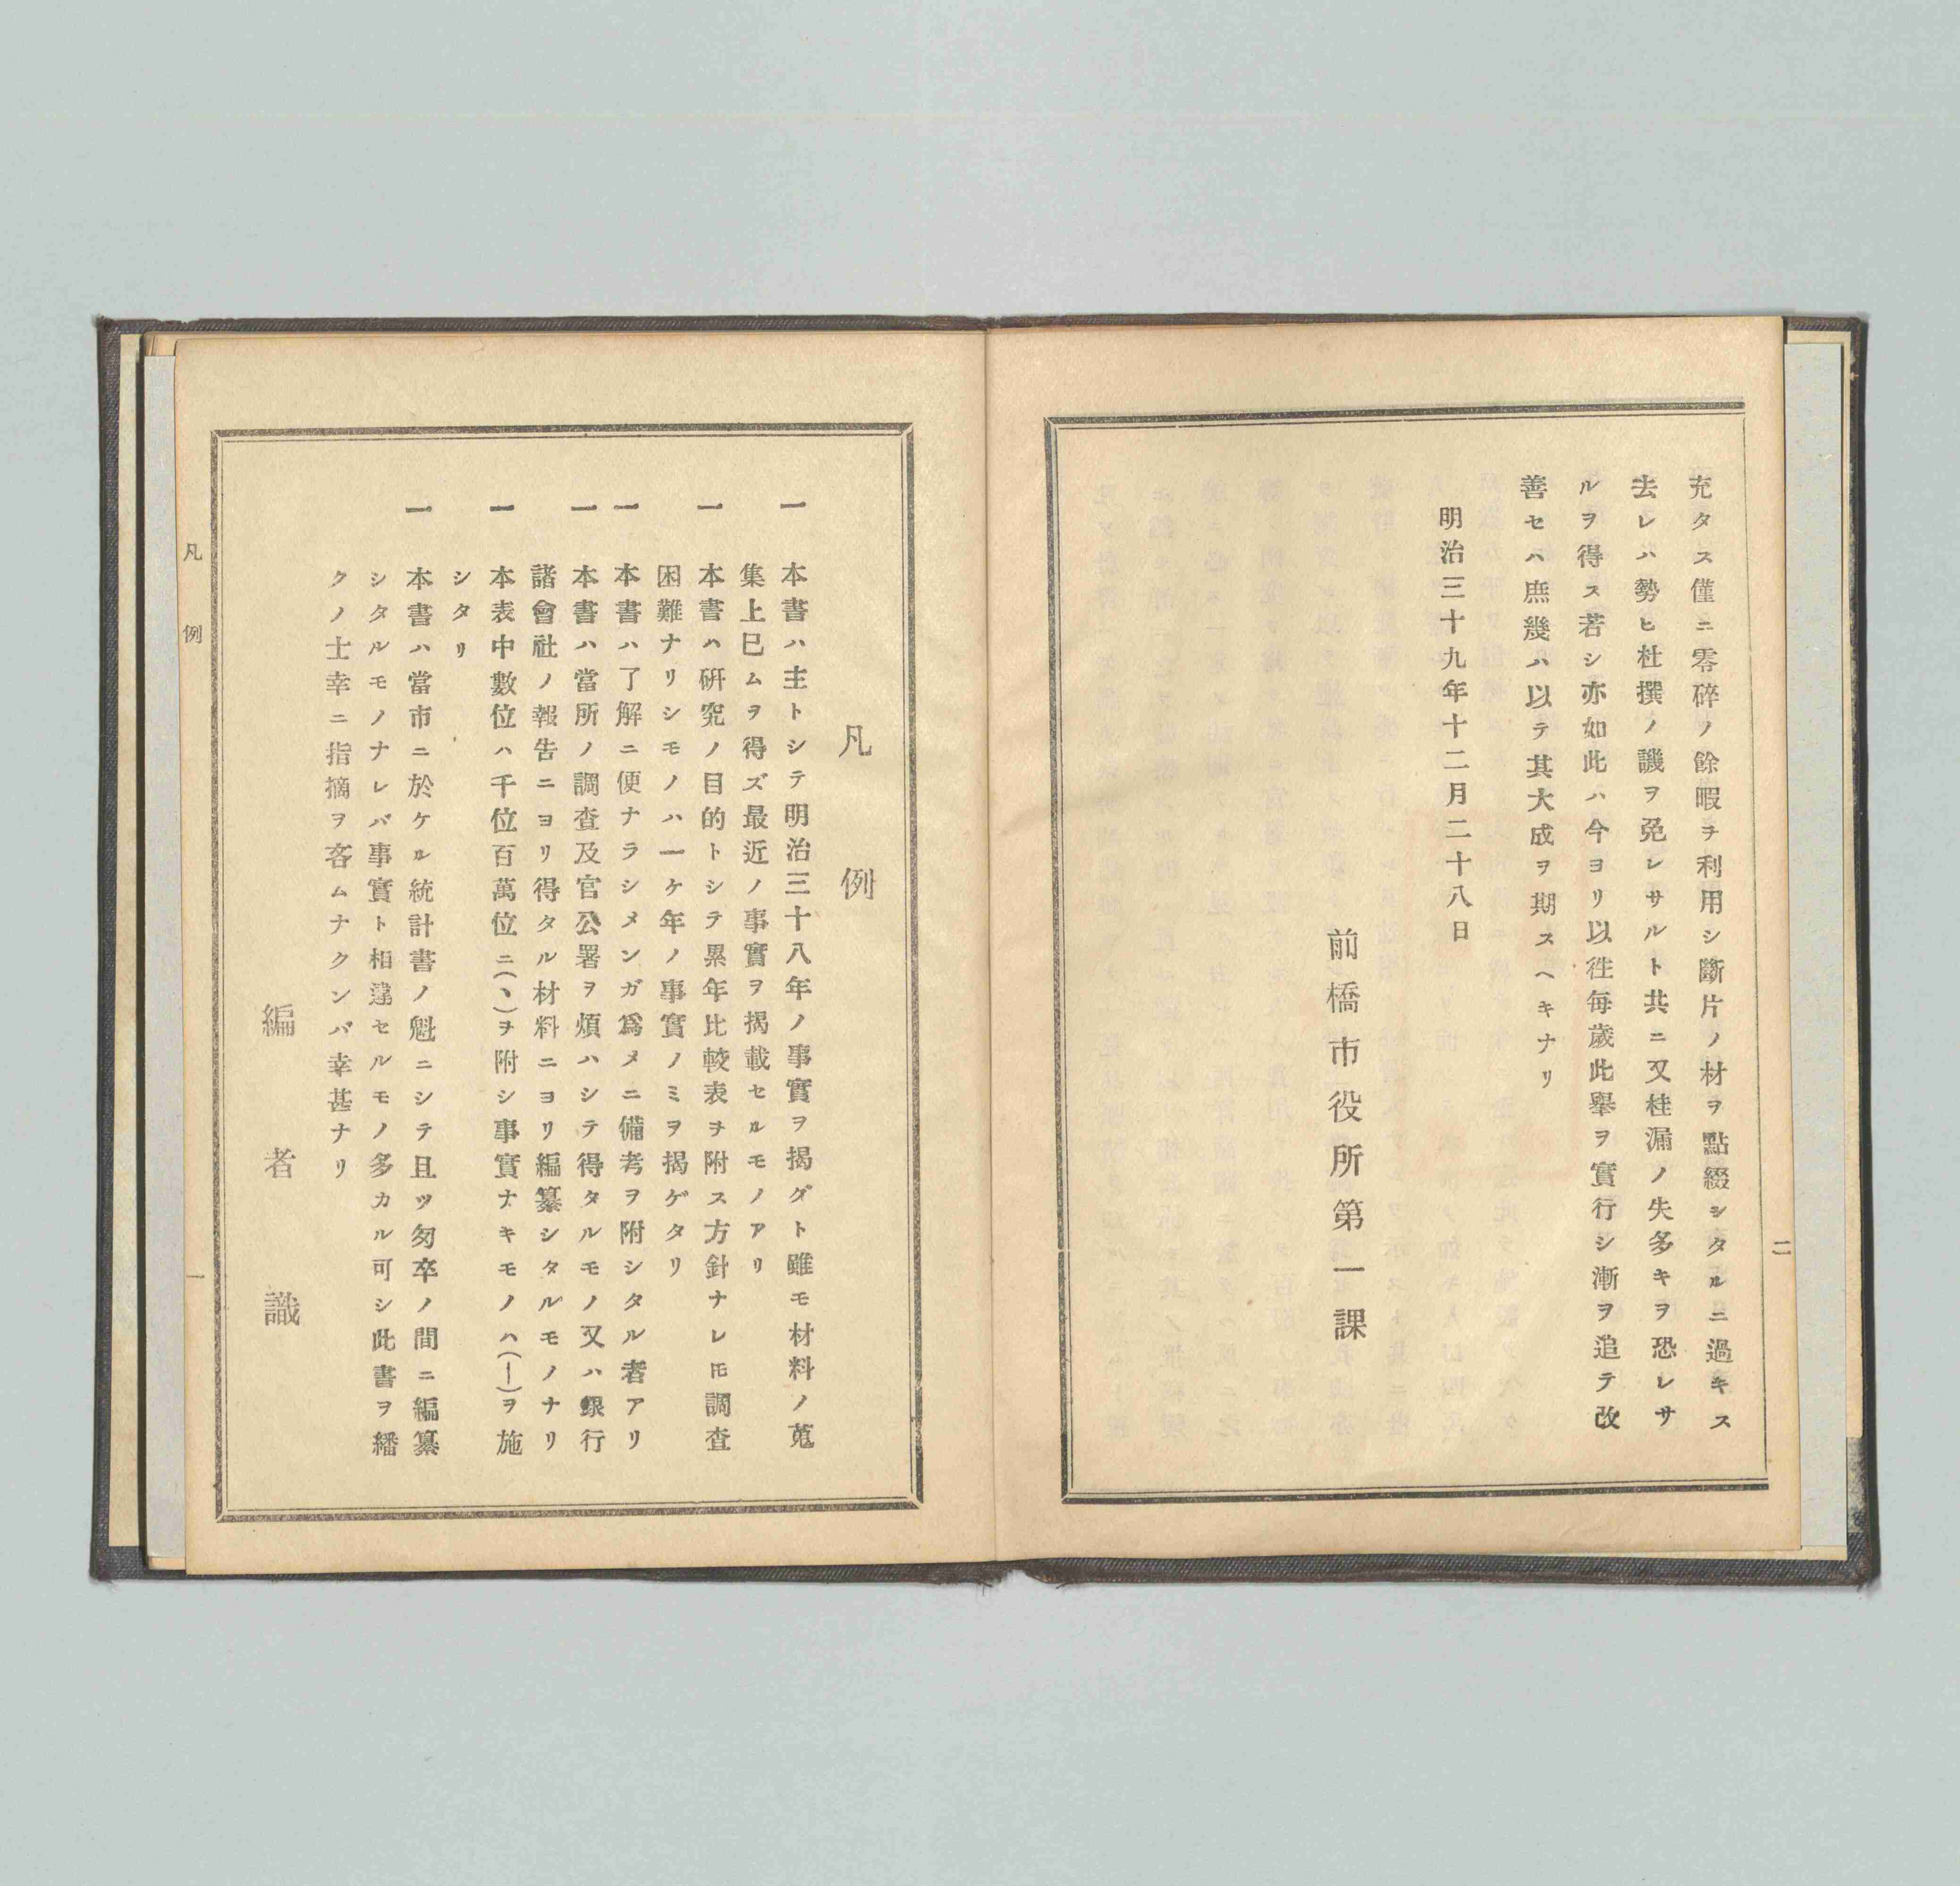 二
充タス僅ニ零碎ノ餘暇ヲ利用シ斷片ノ材ヲ點綴シタルニ過キス
去レハ勢ヒ杜撰ノ譏ヲ免レサルト共ニ又桂漏ノ失多キヲ恐レサ
ルヲ得ス若シ亦如此ハ今ヨリ以徃毎歲此擧ヲ實行シ漸ヲ追テ改
善セハ庶幾ハ以テ其大成ヲ期スヘキナリ
明治三十九年十二月二十八日
前橋市役所第一課
凡例
一 本書ハ主トシテ明治三十八年ノ事實ヲ揭グト雖モ材料ノ蒐
集上已ムヲ得ズ最近ノ事實ヲ揭載セルモノアリ
一 本書ハ硏究ノ目的トシテ累年比較表ヲ附ス方針ナレ𪜈調査
困難ナリシモノハ一ケ年ノ事實ノミヲ揭ゲタリ
一 本書ハ了解ニ便ナラシメンガ爲メニ備考ヲ附シタル者アリ
一 本書ハ當所ノ調査及官公署ヲ煩ハシテ得タルモノ又ハ銀行
諸會社ノ報告ニヨリ得タル材料ニヨリ編纂シタルモノナリ
一 本表中數位ハ千位百萬位ニ(丶)ヲ附シ事實ナキモノハ(―)ヲ施
シタリ
一 本書ハ當市ニ於ケル統計書ノ魁ニシテ且ツ匆卒ノ間ニ編纂
シタルモノナレバ事實ト相違セルモノ多カル可シ此書ヲ繙
クノ士幸ニ指摘ヲ吝ムナクンバ幸甚ナリ
編者識
凡例
一